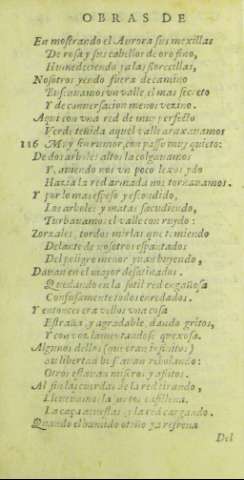 OBRAS DE
En moſtrando el Aurora ſus mexillas
De roſa y ſus cabellos de oro fino,
Humedeciendo ya las florecillas,
Noſotros yendo fuera de camino
Buſcauamos vn valle el mas ſecreto
Y de conuerſacion menos vezino.
Aqui con vna red de muy perfeto
Verde teñida aquel valle atajauamos
116 Muy ſin rumor, con paſſo muy quieto:
De dos arboles altos la colgauamos
Y auiendo nos vn poco lexos ydo
Hazia la red armada nos tornauamos.
Y por lo mas eſpeſo y eſcondido,
Los arboles y matas ſacudiendo,
Turbauamos el valle con ruydo:
Zorzales, tordos mirlas que temiendo
Delante de noſotros eſpantados
Del peligro menor yuan huyendo,
Dauan en el mayor deſatinados.
Quedando en la ſotil red engañoſa
Confuſamente todos enredados.
Y entonces era vellos vna coſa
Eſtraña y agradable, dando gritos,
Y con voz lamentandoſe quexoſa.
Algunos dellos (que eran infinitos)
Su libertad buſcauan rebolando:
Otros eſtauan miſeros y aflitos.
Al fin las cuerdas de la red tirando,
Lleuauamos la juntos caſi llena,
La caça acueſtas y la red cargando.
Quando el humido otoño ya refrena
Del